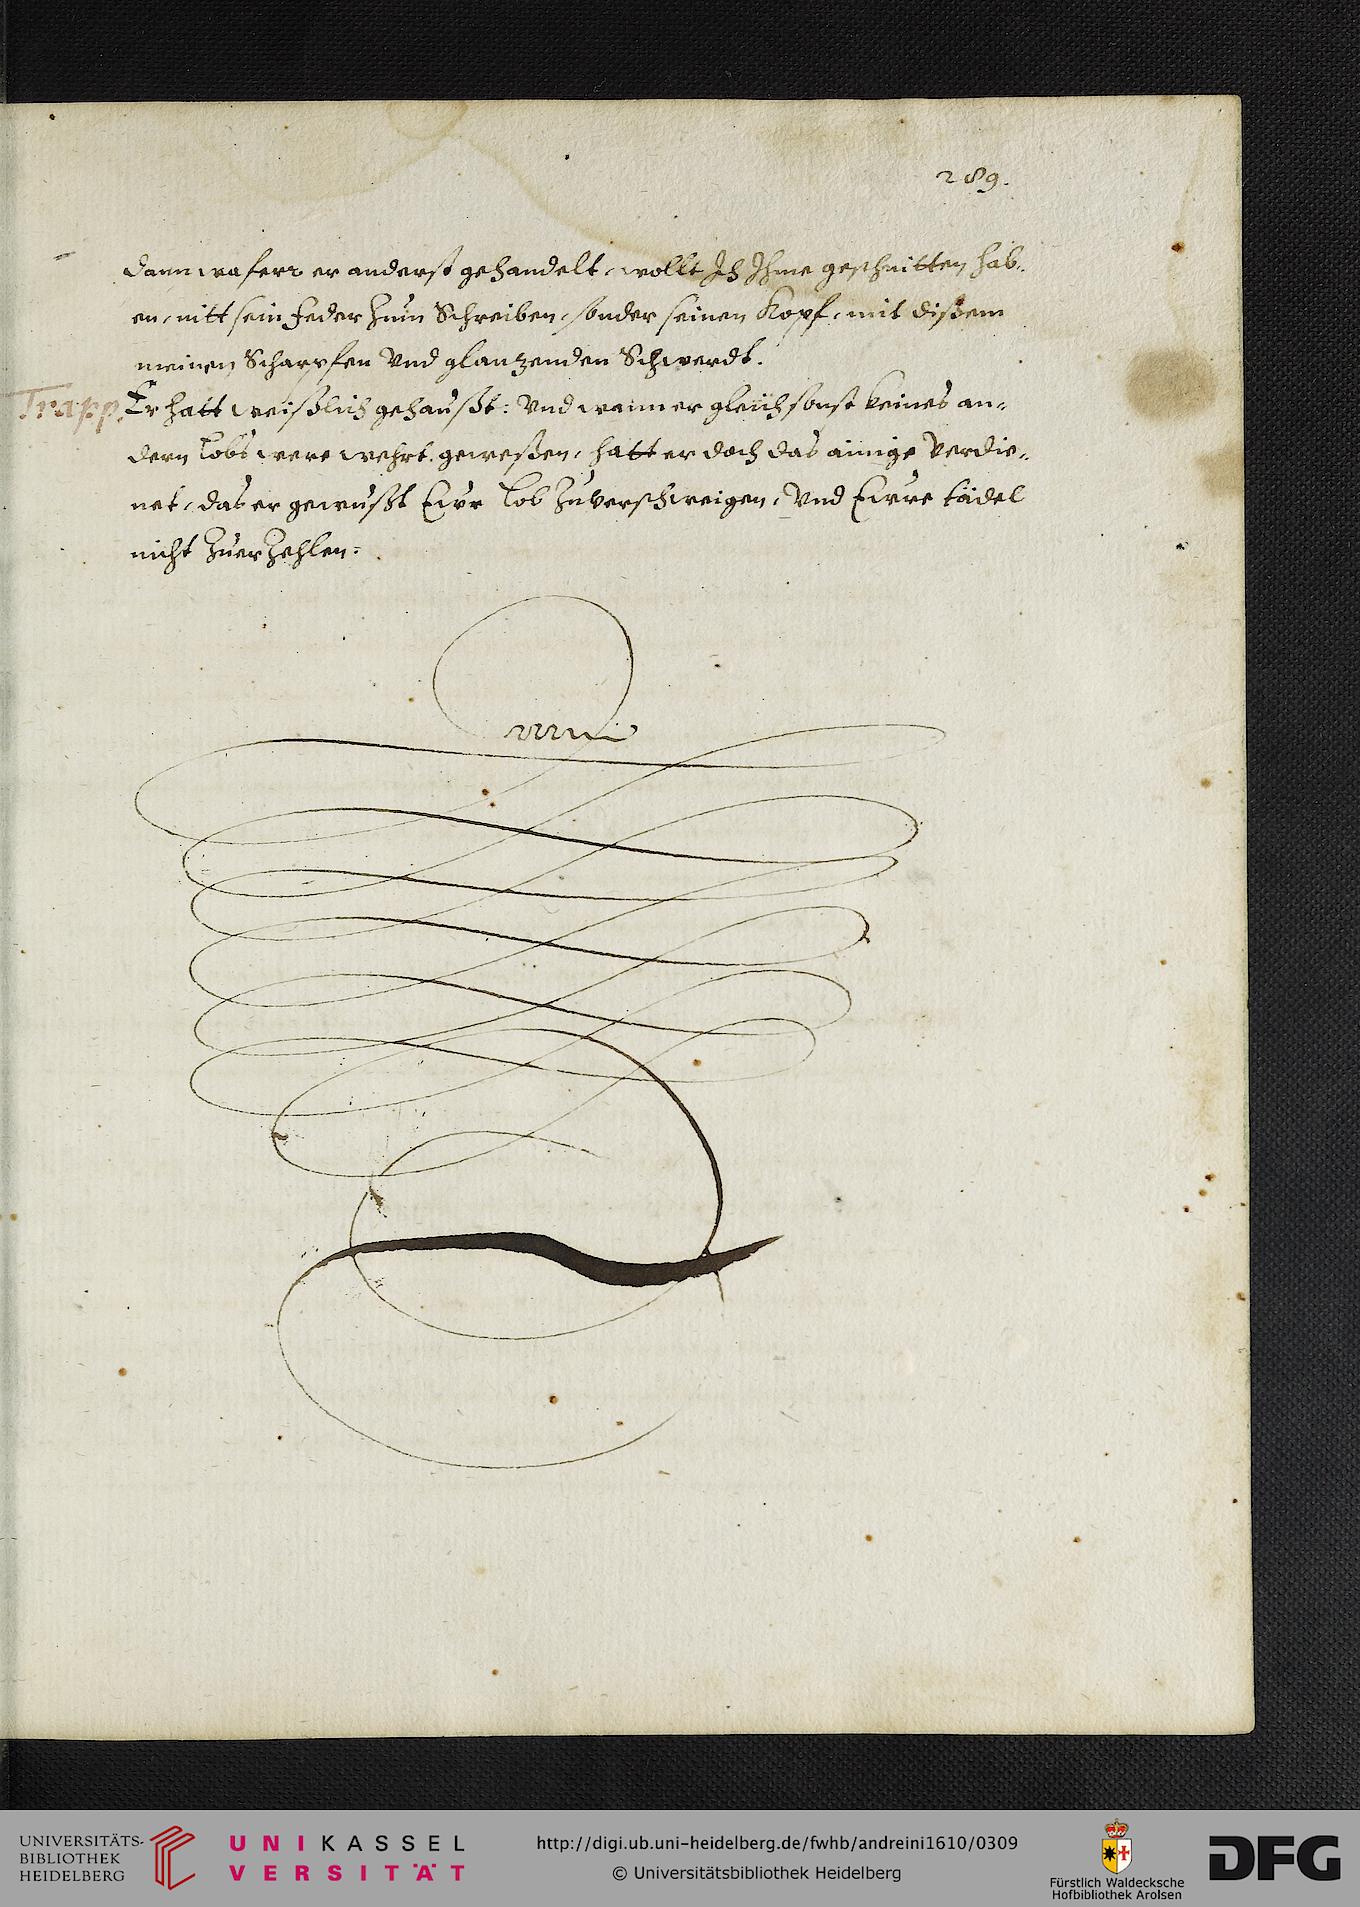 289.
dann waferr er anderst gehandelt, wollt Ich Ihme geschnitten hab-
en, nitt sein feder zum Schreiben, sonder seinen Kopf, mit dißem
meinen Scharpfen Vnd glantzenden Schwerdt.
Trapp. Er hatt weißlich gehaußt: Vnd wann er gleich sonst keines an-
dern lobs were wehrt geweßen, hatt er doch das ainige Verdie-
net, das er gewußt Ewr lob Zuverschweigen, Vnd Ewre tädel
nicht Zuerzehlen:
UNIVERSITÄTS-
BIBLIOTHEK
HEIDELBERG
UNIKASSEL
VERSITÄT
http://digi.ub.uni-heidelberg.de/fwhb/andreini1610/0309
© Universitätsbibliothek Heidelberg
Fürstlich Waldecksche
Hofbibliothek Arolsen
DFG